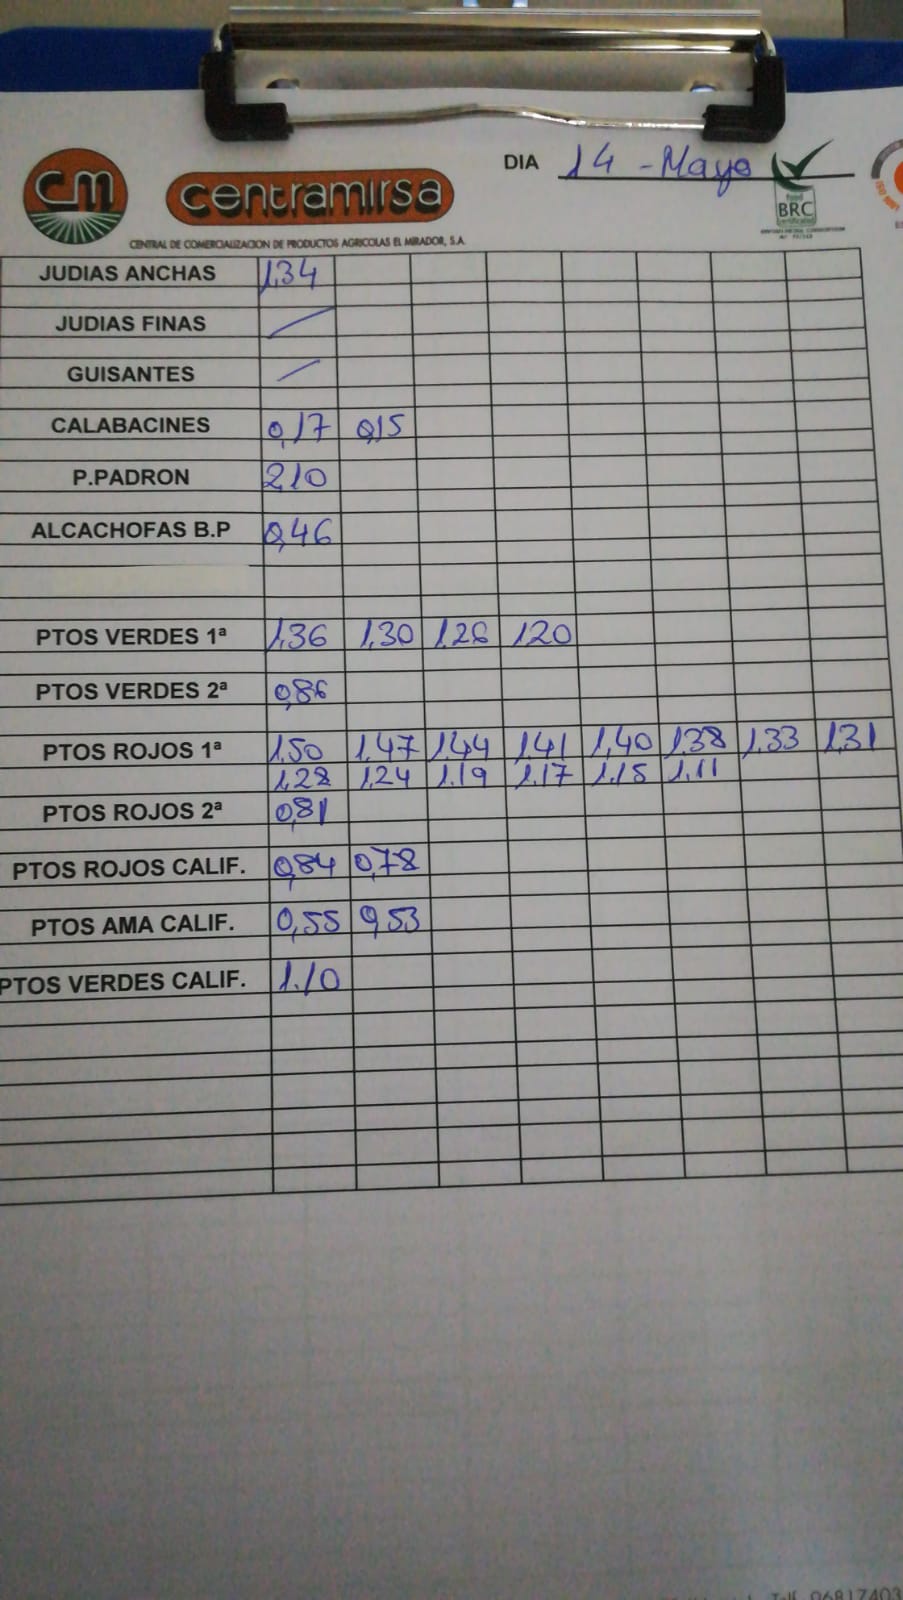 DIA 14 - Mayo
CM centramirsa
food BRC certificated
CENTRAL DE COMERCIALIZACION DE PRODUCTOS AGRICOLAS EL MIRADOR, S.A.
JUDIAS ANCHAS 1,34
JUDIAS FINAS /
GUISANTES /
CALABACINES 0,17 0,15
P.PADRON 2,10
ALCACHOFAS B.P 0,46
PTOS VERDES 1ª 1,36 1,30 1,26 1,20
PTOS VERDES 2ª 0,86
PTOS ROJOS 1ª 1,50 1,47 1,44 1,41 1,40 1,38 1,33 1,31
1,28 1,24 1.19 1.17 1.15 1.11
PTOS ROJOS 2ª 0,81
PTOS ROJOS CALIF. 0,84 0,78
PTOS AMA CALIF. 0,55 0,53
PTOS VERDES CALIF. 1.10
Telf. 96817403